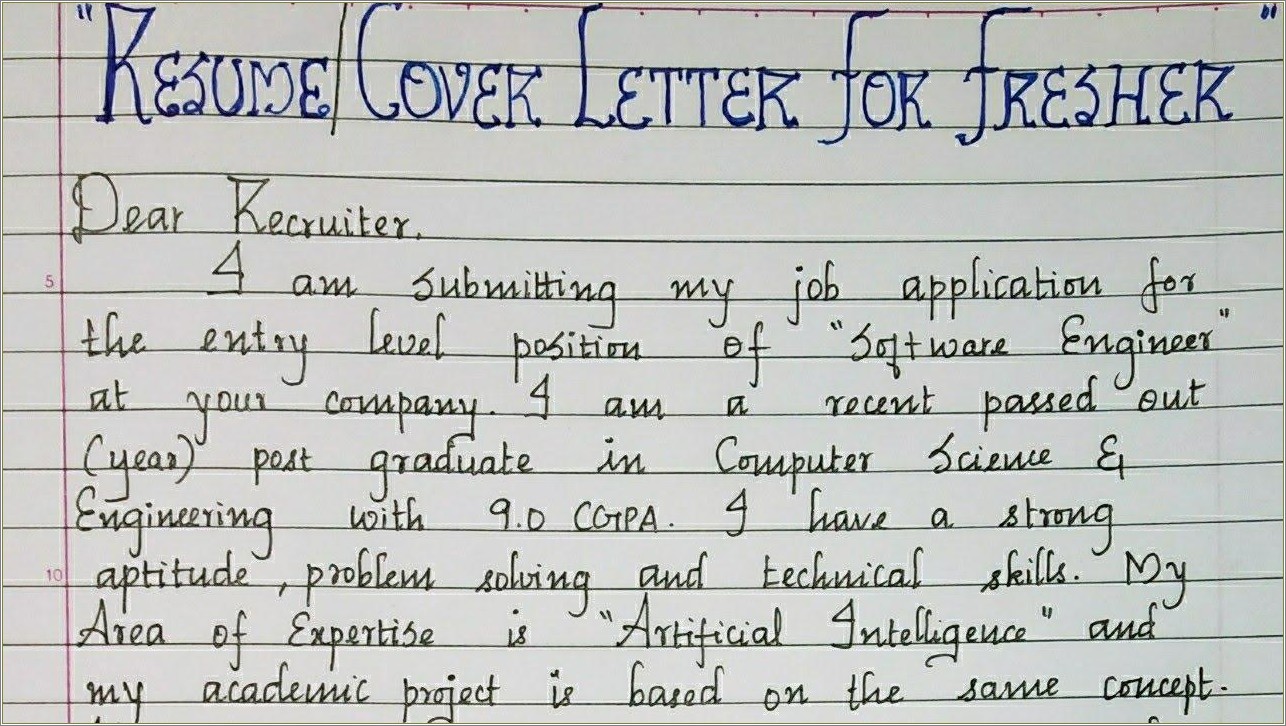 "RESUME/COVER LETTER FOR FRESHER"
Dear Recruiter,
I am submitting my job application for
5
the entry level position of "Software Engineer"
at your company. I am a recent passed out
(year) post graduate in Computer Science &
Engineering with 9.0 CGPA. I have a strong
10 aptitude, problem solving and technical skills. My
Area of Expertise is "Artificial Intelligence" and
my academic project is based on the same concept.